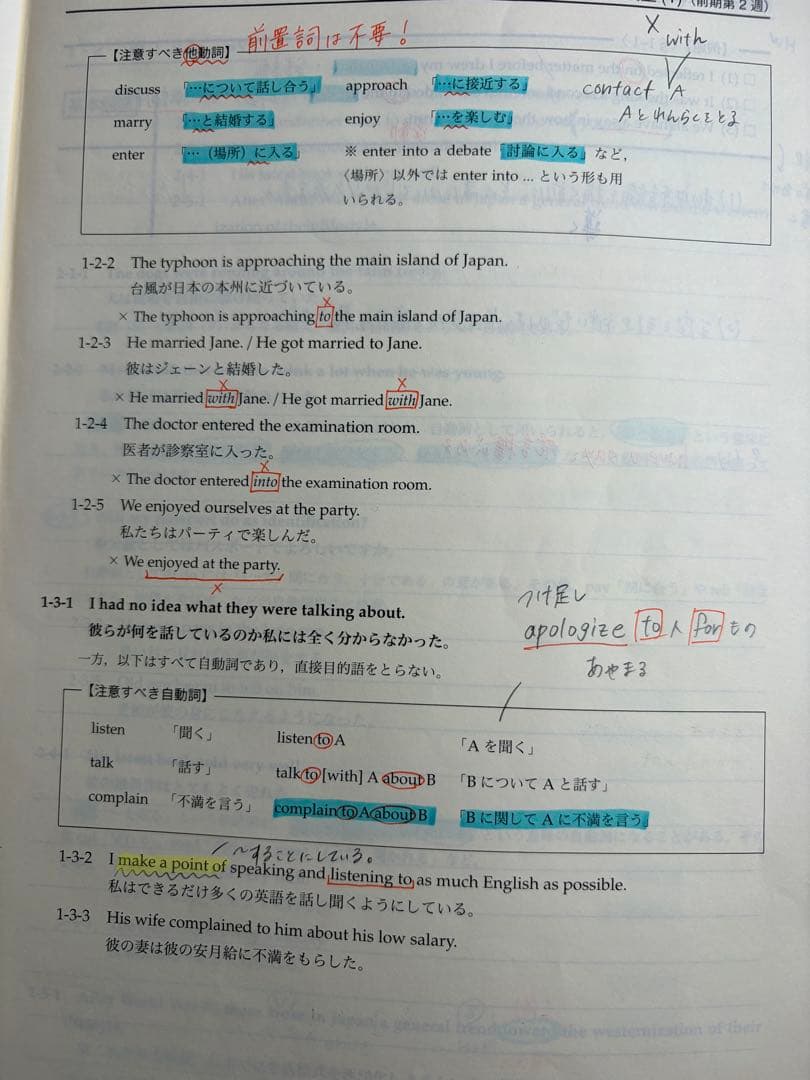 (前期第2週)
【注意すべき他動詞】 前置詞は不要!
× with
discuss 「…について話し合う」 approach 「…に接近する」
contact A
marry 「…と結婚する」 enjoy 「…を楽しむ」
Aとれんらくをとる
enter 「…(場所)に入る」 ※ enter into a debate「討論に入る」など,
〈場所〉以外では enter into ... という形も用
いられる。
1-2-2 The typhoon is approaching the main island of Japan.
台風が日本の本州に近づいている。
×
× The typhoon is approaching to the main island of Japan.
1-2-3 He married Jane. / He got married to Jane.
彼はジェーンと結婚した。
× ×
× He married with Jane. / He got married with Jane.
1-2-4 The doctor entered the examination room.
医者が診察室に入った。
×
× The doctor entered into the examination room.
1-2-5 We enjoyed ourselves at the party.
私たちはパーティで楽しんだ。
× We enjoyed at the party.
×
1-3-1 I had no idea what they were talking about.
彼らが何を話しているのか私には全く分からなかった。
一方,以下はすべて自動詞であり,直接目的語をとらない。
つけ足し
apologize to 人 for もの
あやまる
【注意すべき自動詞】
listen 「聞く」 listen to A 「A を聞く」
talk 「話す」 talk to [with] A about B 「B について A と話す」
complain 「不満を言う」 complain to A about B 「B に関して A に不満を言う」
〜することにしている。
1-3-2 I make a point of speaking and listening to as much English as possible.
私はできるだけ多くの英語を話し聞くようにしている。
1-3-3 His wife complained to him about his low salary.
彼の妻は彼の安月給に不満をもらした。